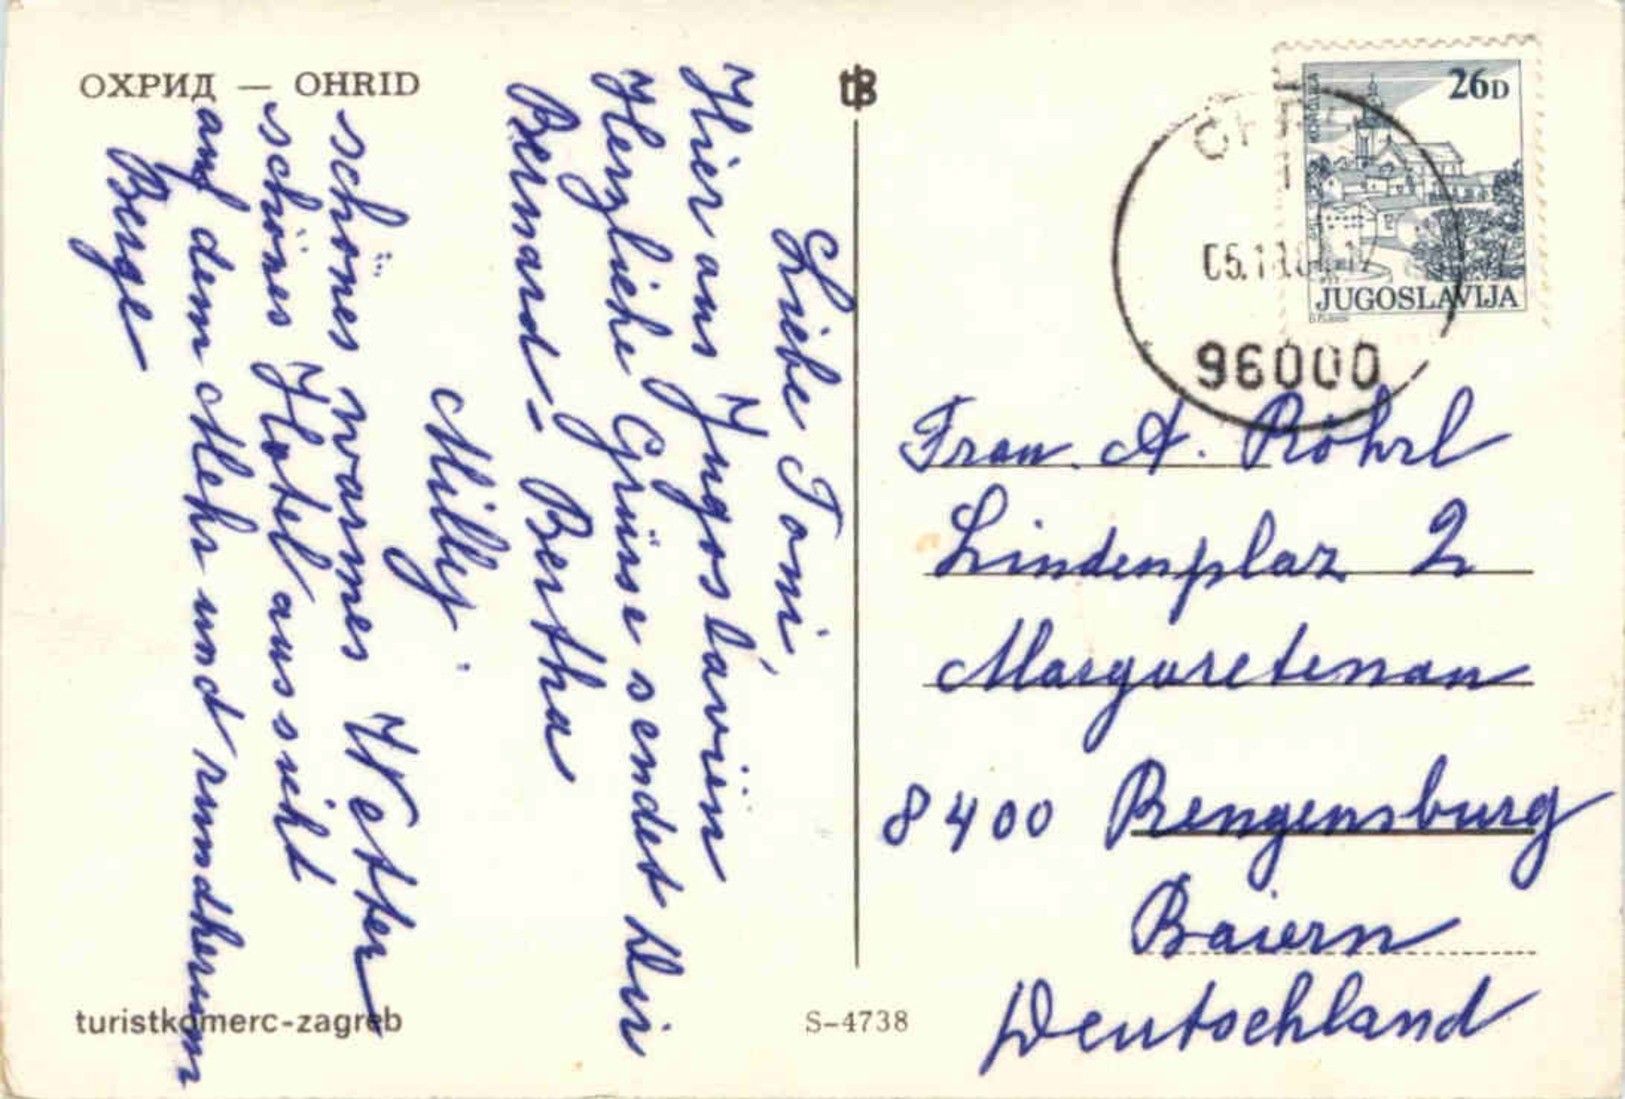 ОХРИД — OHRID
Liebe Toni,
Hier aus Jugoslavien
Herzliche Grüsse sendet Dir
Bernard - Bertha
Milly.
schönes warmes Wetter
schönes Hotel aussicht
auf dem Mehr und rundherum
Berge
turistkomerc-zagreb
S-4738
26D
KORČULA
JUGOSLAVIJA
96000
Frau. A. Röhrl
Lindenplaz 2
Margaretenau
8400 Rengensburg
Baiern
Deutschland